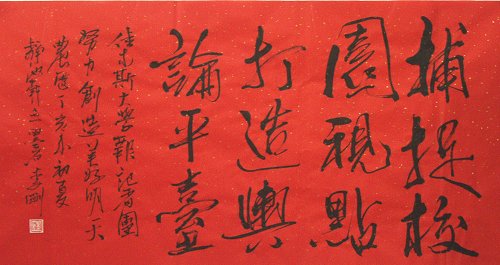 捕捉校
園視點
打造輿
論平臺
佳木斯大學報記者團
努力創造美好明天
農歷丁亥初夏